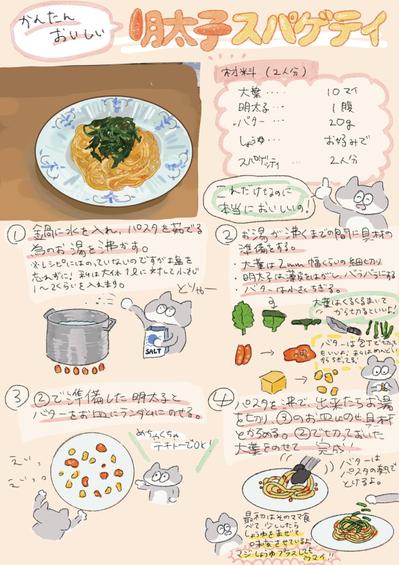 かんたん
おいしい
明太子スパゲティ
材料（2人分）
大葉‥‥ 10マイ
明太子‥‥ 1腹
バター‥‥ 20g
しょうゆ‥‥ お好みで
スパゲティ‥‥ 2人分
これだけなのに
本当においしいの！
① 鍋に水を入れ、パスタを茹でる
為のお湯を沸かす。
※レシピにはのっていないのですが塩を
忘れずに！私は大体1Lに対して小さじ
1〜2くらいを入れます。
とりゃー
SALT
② お湯が沸くまでの間に具材の
準備をする。
・大葉は2mm幅くらいの細切り
・明太子は薄皮をはがしバラバラにする
・バターは小さくちぎる。
大葉はくるくるまいて
から切るといいよ！
バターは包丁で切っても
いいよ。
③ ②で準備した明太子と
バターをお皿にランダムにのせる。
めちゃくちゃ
テキトーでOK！
えいっ
えいっ
④ パスタを茹で、出来たらお湯
を切り、③のお皿にのせ具材
とからめる。②で切っておいた
大葉をのせて 完成
バターは
パスタの熱で
とけるよ。
最初はそのまま食
べて少ししたら
しょうゆをまぜて
味変させているよ
マジしょうゆプラスしても
ウマイ！